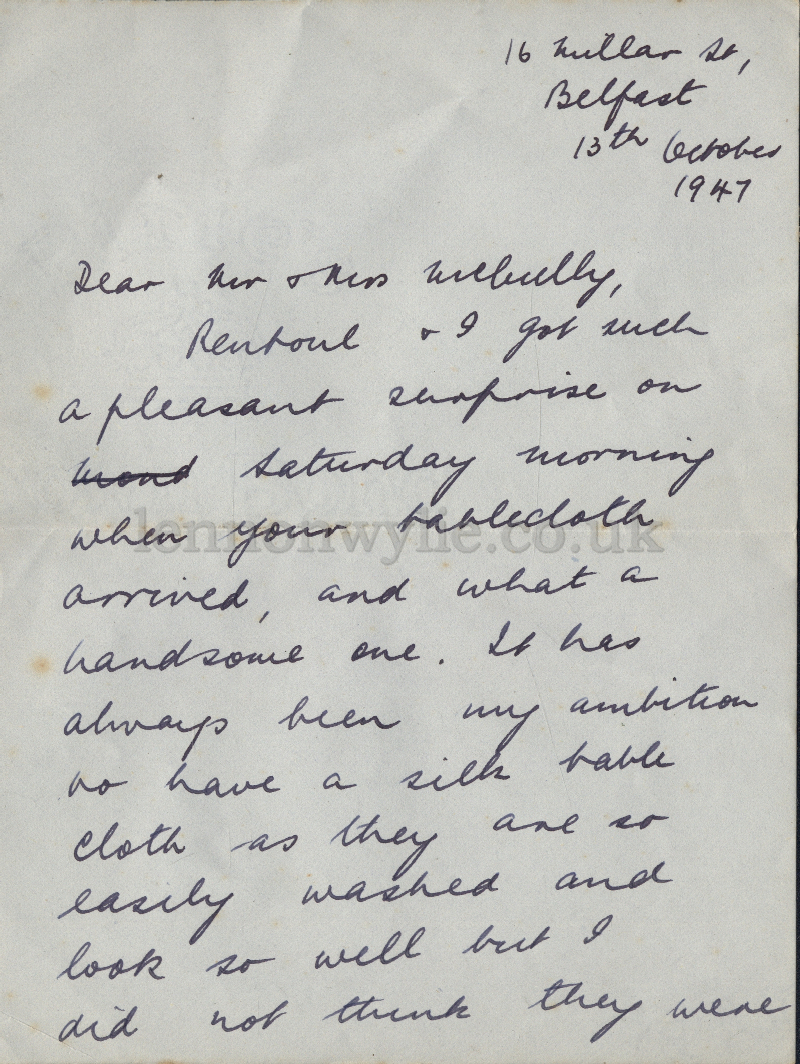 16 Millar St,
Belfast
13th October
1947
Dear Mr & Mrs McCully,
Rentoul & I got such
a pleasant surprise on
Mond Saturday morning
when your tablecloth
lennonwylie.co.uk
arrived, and what a
handsome one. It has
always been my ambition
to have a silk table
cloth as they are so
easily washed and
look so well but I
did not think they were